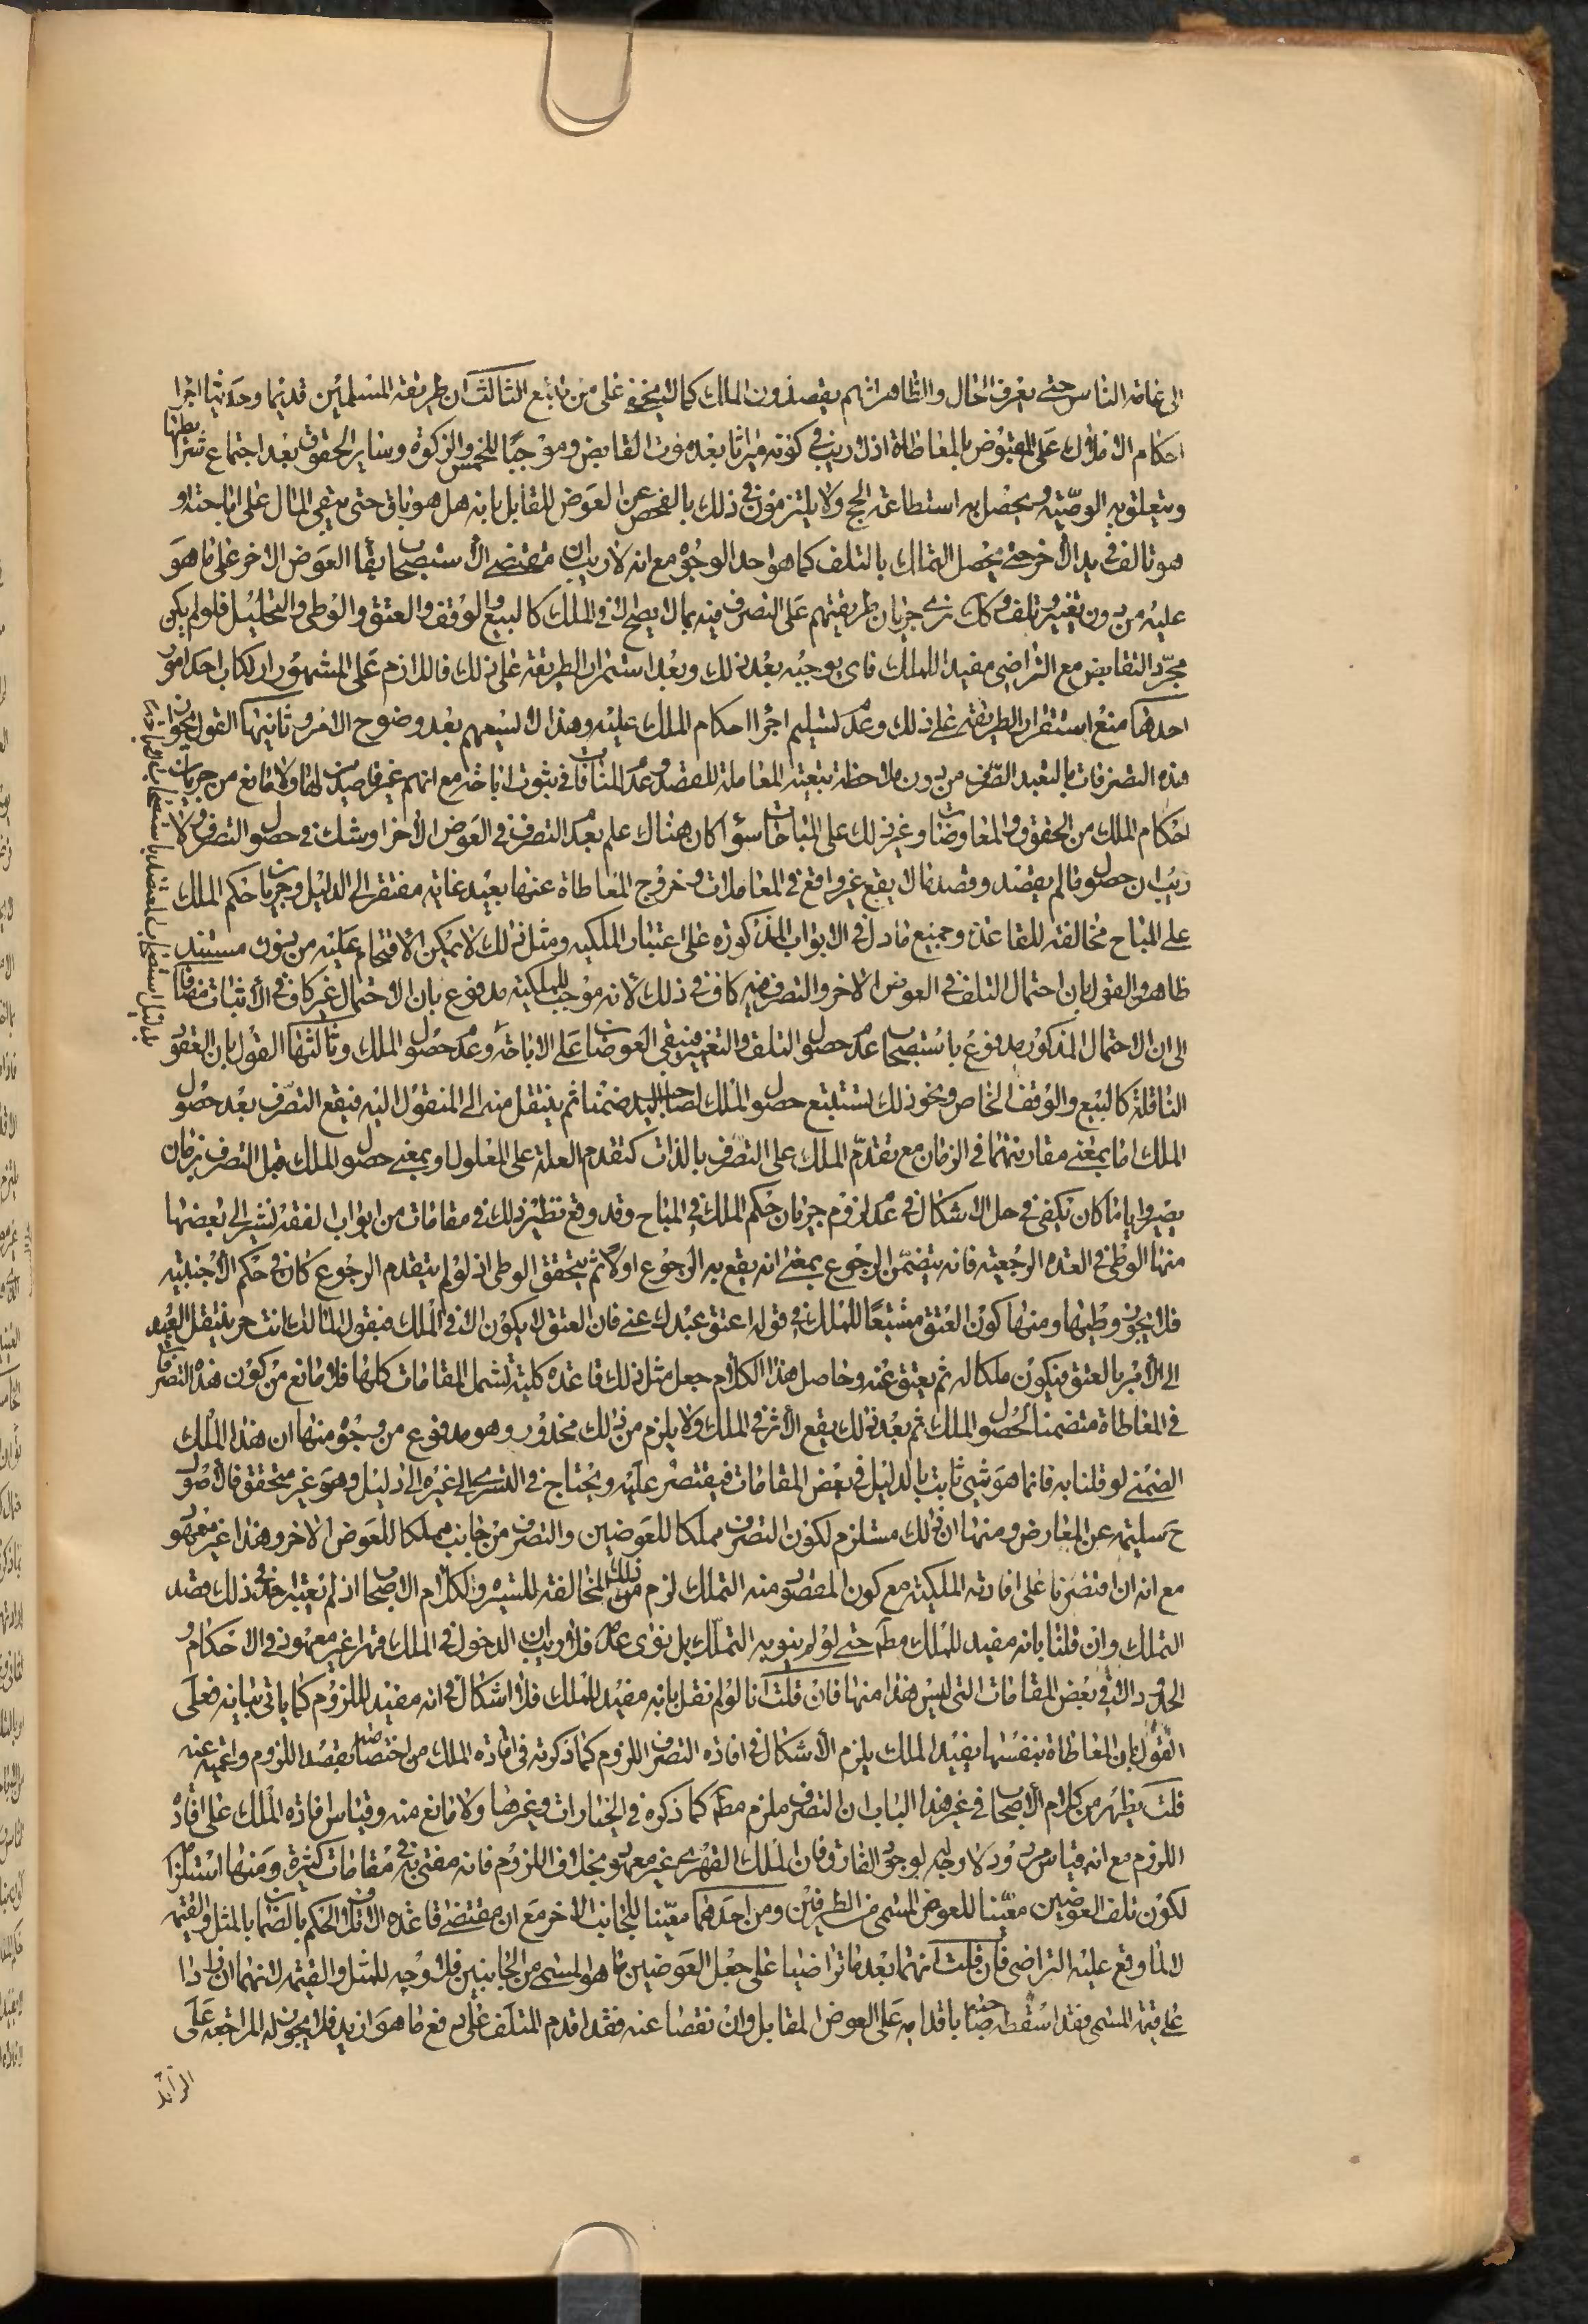 الى عامة الناس حتى يعرف الحال والظاهر انهم يقصدون الملك كما لا يخفى على من تتبع الثالث ان طريقة المسلمين قديما وحديثا اجرا
احكام الاملاك على المقبوض بالمعاطاة اذ لا ريب في كونه ميراثا بعد موت القابض وموجبا للخمس والزكوة وساير الحقوق بعد اجتماع شرايطها
ويتعلق به الوصية ويحصل به استطاعة الحج ولا يلتزمون في ذلك بالفحص عن العوض المقابل بانه هل هو باق حتى يبقى المال على اباحته او
هو تالف في يد الاخر حتى يحصل التملك بالتلف كما هو احد الوجوه مع انه لا ريب ان مقتضى الاستصحاب بقا العوض الاخر على ما هو
عليه من دون تغيير وتلف وكك نرى جريان طريقتهم على التصرف فيه بما لا يصح الا في الملك كالبيع والوقف والعتق والوطى والتحليل فلو لم يكن
مجرد التقابض مع التراضى مفيدا للملك فاى يوجبه بعد ذلك وبعد استمرار الطريقة على ذلك فاللازم على المشهور ارتكاب احد امور
احدها منع استقرار الطريقة على ذلك وعدم تسليم اجرا احكام الملك عليه وهذا لا يسعهم بعد وضوح الامر وثانيها القول بجواز
هذه التصرفات بالتعبد الصرف من دون ملاحظة تبعية المعاملة للقصد وعدم المنافات في ثبوت اباحة مع انهم غير قاصدين لها ولا مانع من جريان
احكام الملك من الحقوق والمعاوضات وغير ذلك على المباحات سوا كان هناك علم بعدم التصرف في العوض الاخر او شك في حصول التصرف ولا
ريب ان حصول ما لم يقصد وقصد ما لا يقع غير واقع في المعاملات وخروج المعاطاة عنها بعيد غايته مفتقر الى الدليل وجريان حكم الملك
على المباح مخالفة للقاعدة وجميع ما دل في الابواب المذكورة على اعتبار الملكية ومثل ذلك لا يمكن الاقتحام عليه من بدون مستند
ظاهر والقول بان احتمال التلف في العوض الاخر والتصرف فيه كاف في ذلك لانه موجب للملكية مدفوع بان الاحتمال غير كاف في الاثبات مضافا
الى ان الاحتمال المذكور مدفوع باستصحاب عدم حصول التلف والتغيير فيبقى العوضان على الاباحة وعدم حصول الملك وثالثها القول بان العقود
الناقلة كالبيع والوقف الخاص ونحو ذلك تستتبع حصول الملك لصاحب اليد ضمنا ثم ينتقل منه الى المنقول اليه فيقع التصرف بعد حصول
الملك اما بمعنى مقارنتهما في الزمان مع تقدم الملك على التصرف بالذات كتقدم العلة على المعلول او بمعنى حصول الملك قبل التصرف بزمان
يصير وايا ما كان يكفى في حل الاشكال في عدم لزوم جريان حكم الملك في المباح وقد وقع نظير ذلك في مقامات من ابواب الفقه نشير الى بعضها
منها الوطى في العدة الرجعية فانه يتضمن الرجوع بمعنى انه يقع به الرجوع اولا ثم يتحقق الوطى اذ لو لم يتقدم الرجوع كان في حكم الاجنبية
فلا يجوز وطيها ومنها كون العتق مشتبعا للملك في قوله اعتق عبدك عنى فان العتق لا يكون الا في الملك فيقول المالك انت حر ينتقل العبد
الى الامر بالعتق فيكون ملكا له ثم يعتق عنه وحاصل هذا الكلام جعل مثل ذلك قاعدة كلية تشمل المقامات كلها فلا مانع من كون هذه التصرفات
في المعاطاة متضمنا لحصول الملك ثم بعد ذلك يقع الاثر في الملك ولا يلزم من ذلك محذور وهو مدفوع من وجوه منها ان هذا الملك
الضمنى لو قلنا به فانما هو شى ثابت بالدليل في بعض المقامات فيقتصر عليه ويحتاج في التسرى الى غيره الى دليل وهو غير متحقق فالاصول
ح سليمة عن المعارض ومنها ان ذلك مستلزم لكون التصرف مملكا للعوضين والتصرف من جانب مملكا للعوض الاخر وهذا غير معهود
مع انه ان اقتصرنا على افادته الملكية مع كون المقصود منه التملك لزم من ذلك المخالفة للسيرة وكلام الاصحاب اذ لم يعتبر احد في ذلك قصد
التملك وان قلنا بانه مفيد للملك مطم حتى لو لم ينو به التملك بل نوى عدمه فلا ريب ان الدخول في الملك قهرا غير معهود في الاحكام و
الحدود الا في بعض المقامات التى ليس هذا منها فان قلت انا لو لم نقل بانه مفيد للملك فلا اشكال في انه مفيد للزوم كما ياتى بيانه فعلى
القول بان المعاطاة بنفسها يفيد الملك يلزم الاشكال في افادة التصرف اللزوم كما ذكرته في افادة الملك من اختصاصه بقصد اللزوم واعميته عنه
قلت يظهر من كلام الاصحاب في غير هذا الباب ان التصرف ملزم مطم كما ذكره في الخيارات وغيرها ولا مانع منه وقياس افادة الملك على افادة
اللزوم مع انه قياس مردود لا وجه له لوجود الفارق فان الملك القهرى غير معهود بخلاف اللزوم فانه مفتى به في مقامات كثيرة ومنها استلزامه
لكون تلف العوضين معينا للعوض المسمى من الطرفين ومن احدهما معينا للجانب الاخر مع ان مقتضى قاعدة الاتلاف والحكم بالضمان بالمثل والقيمة
لا لما وقع عليه التراضى فان قلت انهما بعد ما تراضيا على جعل العوضين ما هو المسمى من الجانبين فلا وجه للمثل والقيمة لانهما ان زادا
على قيمة المسمى فقد اسقط صاحبه باقدامه على العوض المقابل وان نقصا عنه فقد اقدم المتلف على دفع ما هو ازيد فلا يجوز له المراجعة على
الزايد